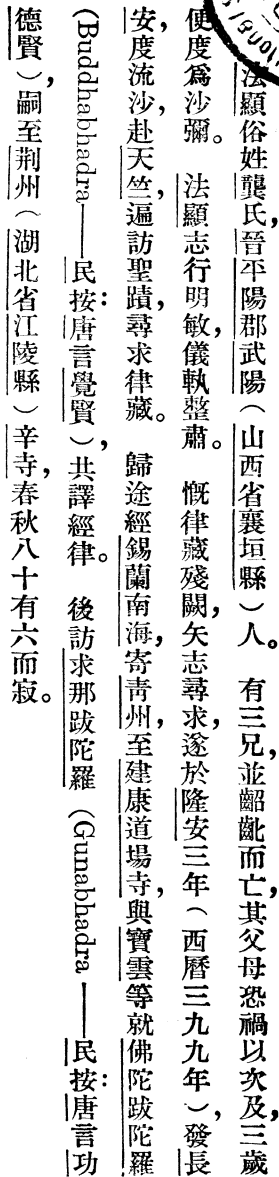 法顯俗姓龔氏，晉平陽郡武陽（山西省襄垣縣）人。　有三兄，並齠齔而亡，其父母恐禍以次及，三歲
便度爲沙彌。　法顯志行明敏，儀軌整肅。　慨律藏殘闕，矢志尋求，遂於隆安三年（西曆三九九年），發長
安，度流沙，赴天竺，遍訪聖蹟，尋求律藏。　歸途經錫蘭南海，寄青州，至建康道場寺，與寶雲等就佛陀跋陀羅
（Buddhabhadra——民按：唐言覺賢），共譯經律。　後訪求那跋陀羅（Gunabhadra——民按：唐言功
德賢），嗣至荆州（湖北省江陵縣）辛寺，春秋八十有六而寂。